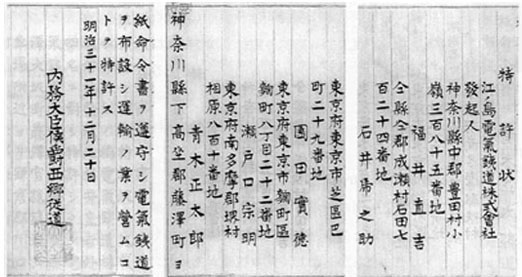 特許状
江ノ島電氣鉄道株式會社
發起人
神奈川縣中郡豊田村小
嶺三百八十五番地
福井直吉
仝縣仝郡成瀬村石田七
百二十四番地
石井席之助
東京府東京市芝區巴
町二十九番地
園田實徳
東京府東京市麹町區
麹町八丁目二十二番地
瀬戸口宗明
東京府南多摩郡堺村
相原八百十番地
青木正太郎
神奈川縣下高坐郡藤澤町ヨ
紙命令書ヲ遵守シ電氣鉄道
ヲ布設シ運輸ノ業ヲ營ムコ
トヲ特許ス
明治三十一年十二月二十日
内務大臣侯爵西郷従道